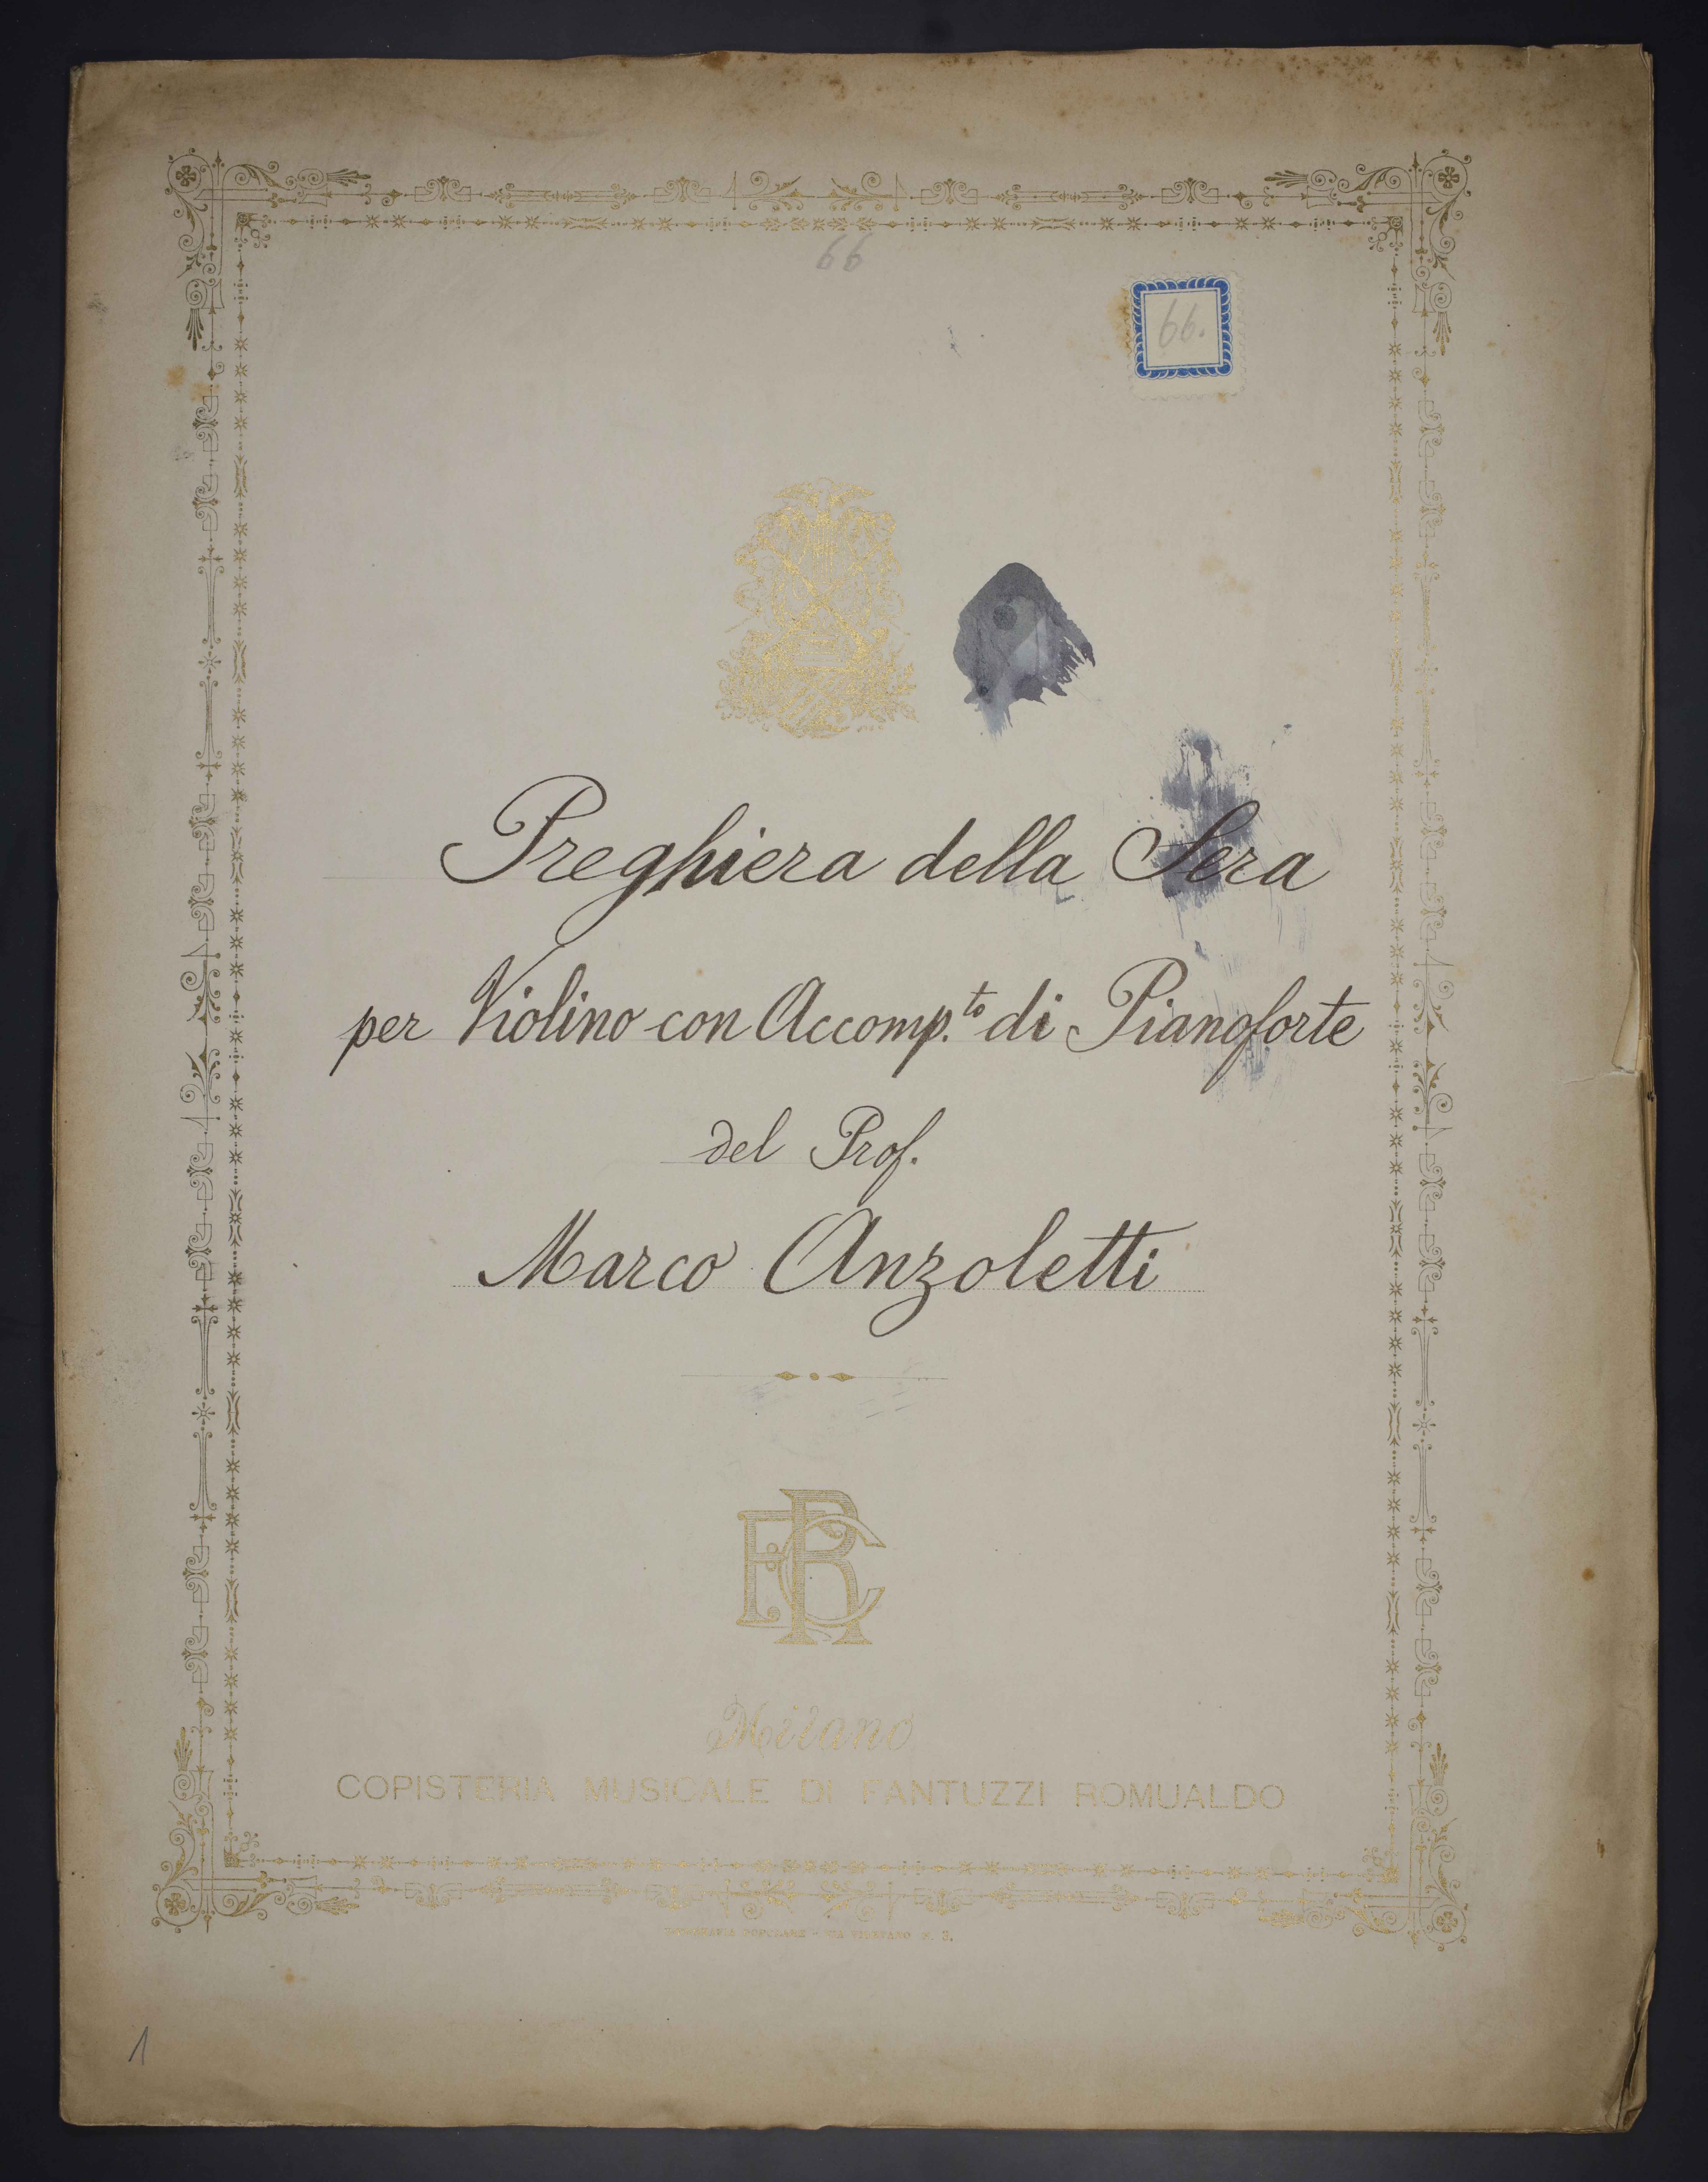 66
66.
Preghiera della Sera
per Violino con Accomp.to di Pianoforte
del Prof.
Marco Anzoletti
FRC
Milano
COPISTERIA MUSICALE DI FANTUZZI ROMUALDO
TIPOGRAFIA POPOLARE - VIA N. 3.
1